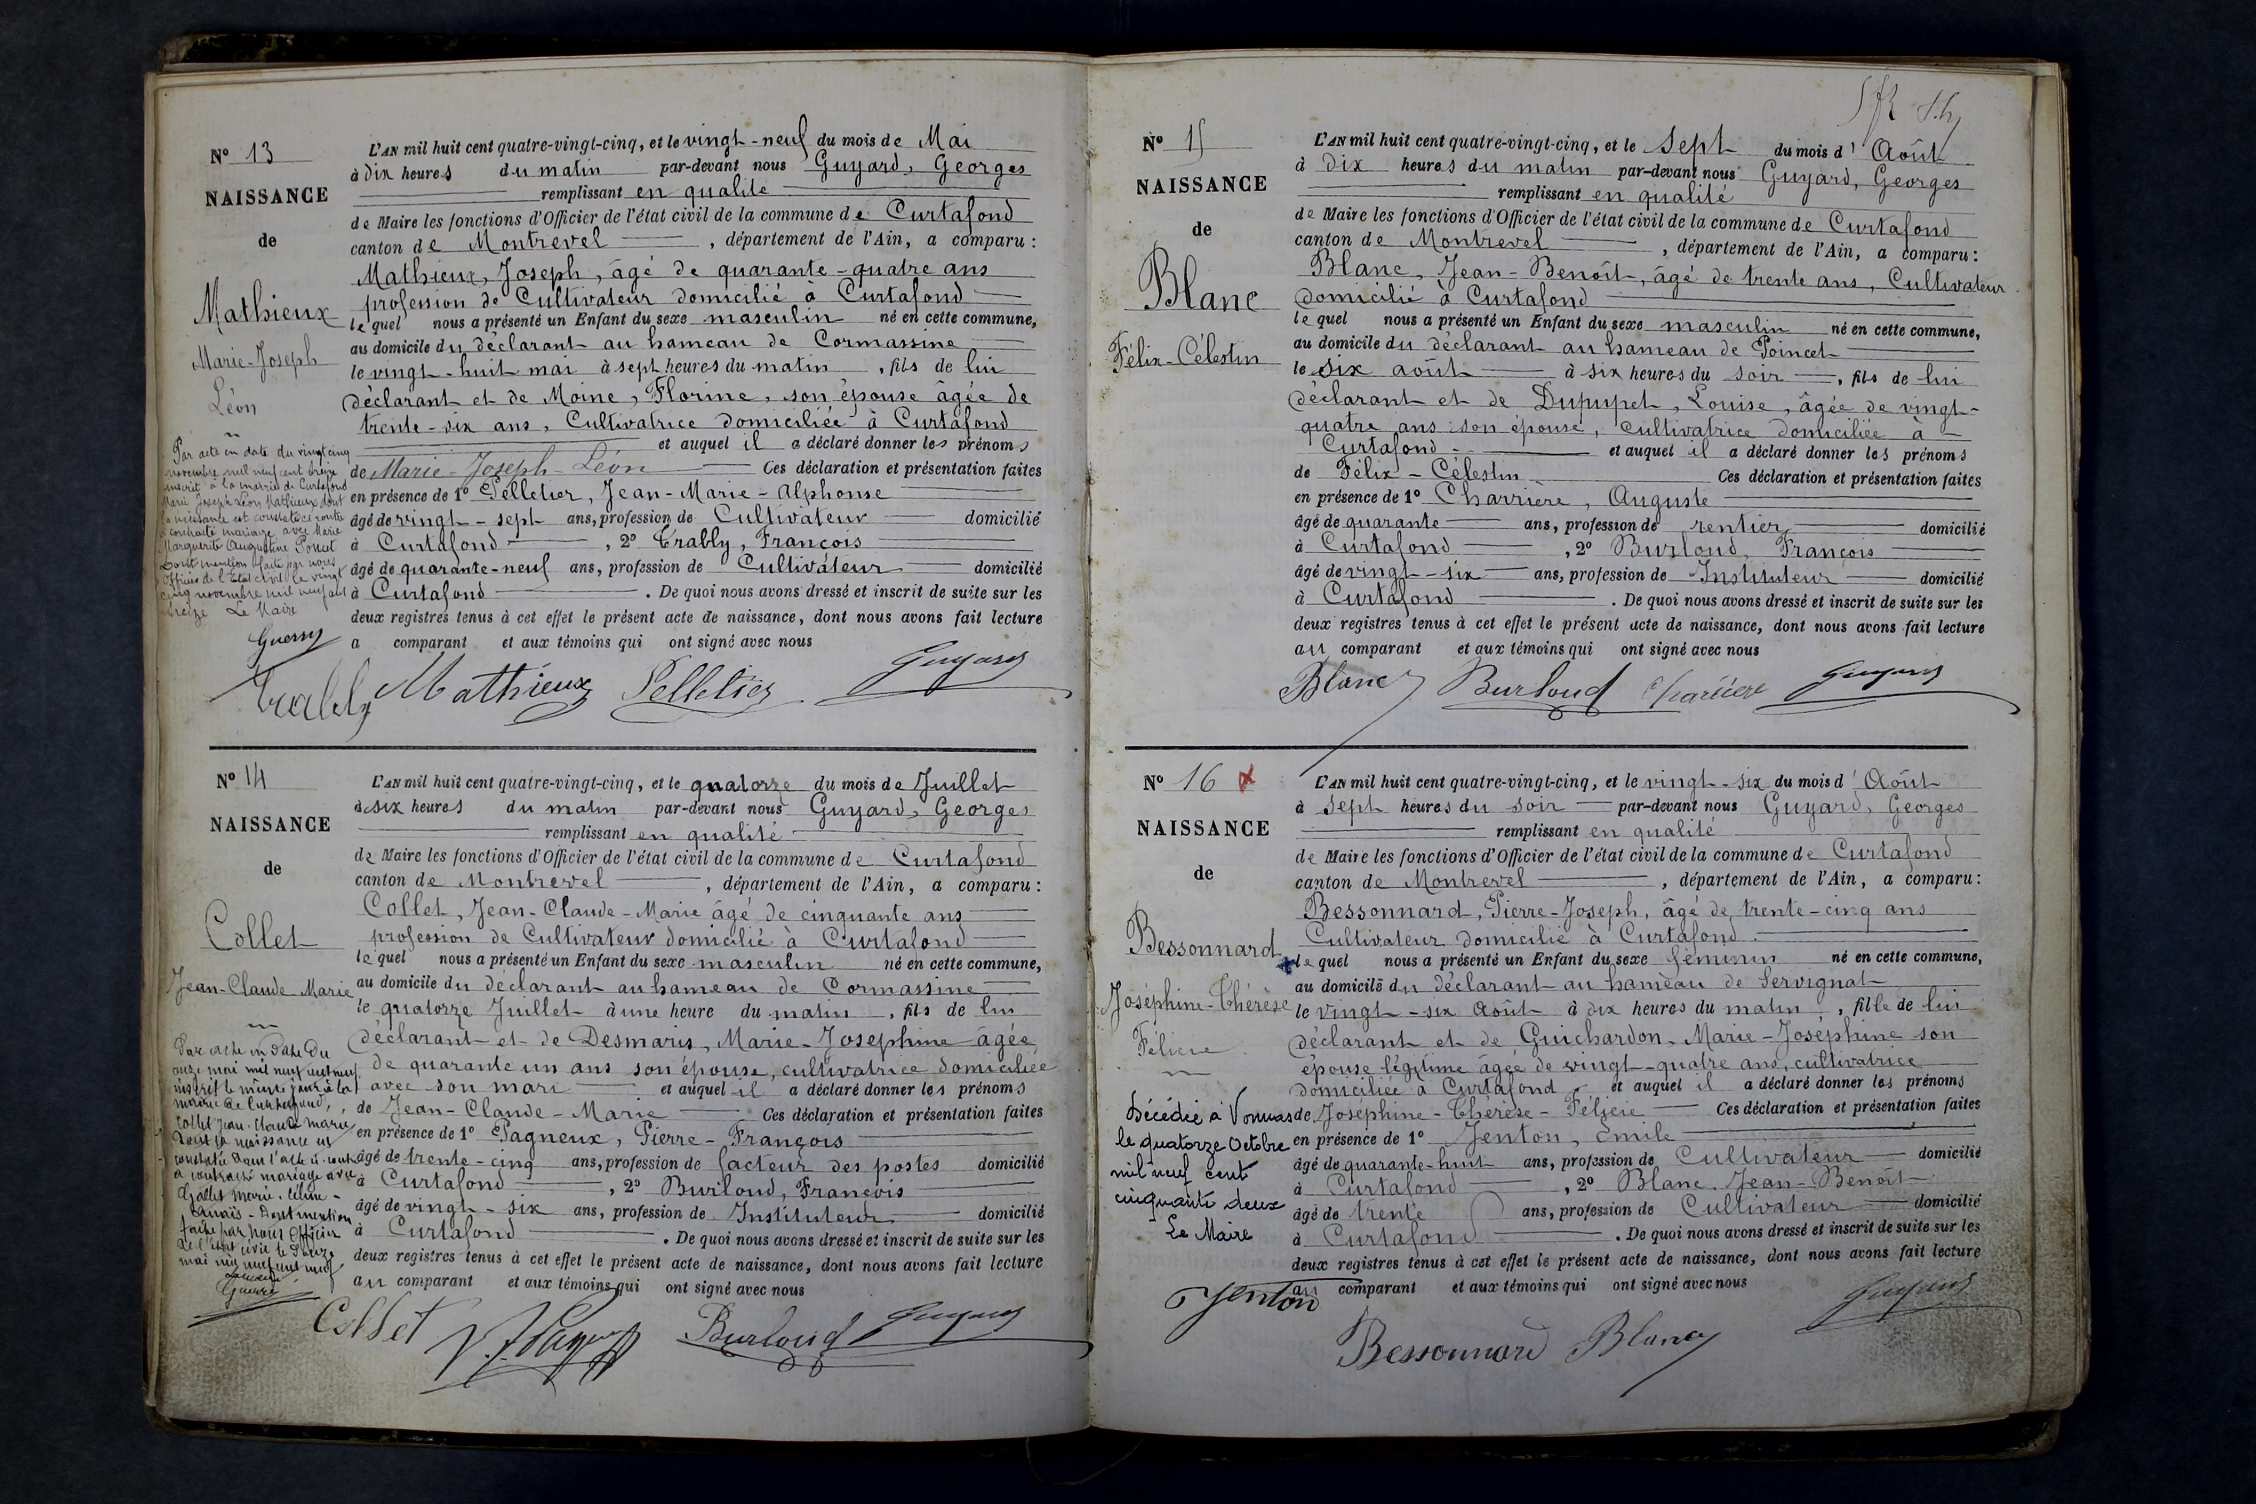 Nº 13
NAISSANCE
de
Mathieux
Marie-Joseph
Léon
Par acte en date du vingt cinq
novembre mil neuf cent treize
inscrit à la mairie de Curtafond
Marie Joseph Léon Mathieux dont
la naissance est constatée ci contre
a contracté mariage avec Marie
Marguerite Augustine Poncet
Dont mention faite par nous
Officier de l'Etat civil le vingt
cinq novembre mil neuf cent
treize Le Maire
Guerry
L'AN mil huit cent quatre-vingt-cinq, et le vingt-neuf du mois de Mai
à dix heures du matin par-devant nous Guyard, Georges
remplissant en qualité
de Maire les fonctions d'Officier de l'état civil de la commune de Curtafond
canton de Montrevel, département de l'Ain, a comparu :
Mathieux, Joseph, âgé de quarante-quatre ans
profession de Cultivateur domicilié à Curtafond
lequel nous a présenté un Enfant du sexe masculin né en cette commune,
au domicile du déclarant au hameau de Cormassine
le vingt-huit mai à sept heures du matin, fils de lui
déclarant et de Moine, Florine, son épouse âgée de
trente-six ans, Cultivatrice domiciliée à Curtafond
et auquel il a déclaré donner les prénoms
de Marie-Joseph-Léon Ces déclaration et présentation faites
en présence de 1º Pelletier, Jean-Marie-Alphonse
âgé de vingt-sept ans, profession de Cultivateur domicilié
à Curtafond, 2º Trably, François
âgé de quarante-neuf ans, profession de Cultivateur domicilié
à Curtafond. De quoi nous avons dressé et inscrit de suite sur les
deux registres tenus à cet effet le présent acte de naissance, dont nous avons fait lecture
a comparant et aux témoins qui ont signé avec nous
Trably Mathieux Pelletier Guyard
Nº 14
NAISSANCE
de
Collet
Jean-Claude Marie
Par acte en date du
onze mai mil neuf cent neuf
inscrit le même jour à la
mairie de Curtafond,
Collet Jean-Claude Marie
dont la naissance est
constatée dans l'acte ci-contre
a contracté mariage avec
Gallet Marie-Céline-
Dont mention
faite par nous Officier
de l'état civil le douze
mai mil neuf cent neuf
Guerry
L'AN mil huit cent quatre-vingt-cinq, et le quatorze du mois de Juillet
à six heures du matin par-devant nous Guyard, Georges
remplissant en qualité
de Maire les fonctions d'Officier de l'état civil de la commune de Curtafond
canton de Montrevel, département de l'Ain, a comparu :
Collet, Jean-Claude-Marie âgé de cinquante ans
profession de Cultivateur domicilié à Curtafond
lequel nous a présenté un Enfant du sexe masculin né en cette commune,
au domicile du déclarant au hameau de Cormassine
le quatorze Juillet à une heure du matin, fils de lui
déclarant et de Desmaris, Marie-Josephine âgée
de quarante un ans son épouse, cultivatrice domiciliée
avec son mari et auquel il a déclaré donner les prénoms
de Jean-Claude-Marie Ces déclaration et présentation faites
en présence de 1º Pagneux, Pierre-François
âgé de trente-cinq ans, profession de facteur des postes domicilié
à Curtafond, 2º Burloud, François
âgé de vingt-six ans, profession de Instituteur domicilié
à Curtafond. De quoi nous avons dressé et inscrit de suite sur les
deux registres tenus à cet effet le présent acte de naissance, dont nous avons fait lecture
au comparant et aux témoins qui ont signé avec nous
Collet Burloud Guyard
Nº 15
NAISSANCE
de
Blanc
Félix-Célestin
L'AN mil huit cent quatre-vingt-cinq, et le Sept du mois d'Août
à dix heures du matin par-devant nous Guyard, Georges
remplissant en qualité
de Maire les fonctions d'Officier de l'état civil de la commune de Curtafond
canton de Montrevel, département de l'Ain, a comparu :
Blanc, Jean-Benoît, âgé de trente ans, Cultivateur
domicilié à Curtafond
lequel nous a présenté un Enfant du sexe masculin né en cette commune,
au domicile du déclarant au hameau de Poincet
le six août à six heures du soir, fils de lui
déclarant et de Dupupet, Louise, âgée de vingt-
quatre ans son épouse, cultivatrice domiciliée à
Curtafond et auquel il a déclaré donner les prénoms
de Félix-Célestin Ces déclaration et présentation faites
en présence de 1º Charrière, Auguste
âgé de quarante ans, profession de rentier domicilié
à Curtafond, 2º Burloud, François
âgé de vingt-six ans, profession de Instituteur domicilié
à Curtafond. De quoi nous avons dressé et inscrit de suite sur les
deux registres tenus à cet effet le présent acte de naissance, dont nous avons fait lecture
au comparant et aux témoins qui ont signé avec nous
Blanc Burloud Charrière Guyard
Nº 16
NAISSANCE
de
Bessonnard
Joséphine-Thérèse
Félicie
Décédée à Vonnas
le quatorze Octobre
mil neuf cent
cinquante deux
Le Maire
L'AN mil huit cent quatre-vingt-cinq, et le vingt-six du mois d'Août
à sept heures du soir par-devant nous Guyard, Georges
remplissant en qualité
de Maire les fonctions d'Officier de l'état civil de la commune de Curtafond
canton de Montrevel, département de l'Ain, a comparu :
Bessonnard, Pierre-Joseph, âgé de trente-cinq ans
Cultivateur domicilié à Curtafond
lequel nous a présenté un Enfant du sexe féminin né en cette commune,
au domicile du déclarant au hameau de Servignat
le vingt-six Août à dix heures du matin, fille de lui
déclarant et de Guichardon, Marie-Joséphine son
épouse légitime âgée de vingt-quatre ans, cultivatrice
domiciliée à Curtafond et auquel il a déclaré donner les prénoms
de Joséphine-Thérèse-Félicie Ces déclaration et présentation faites
en présence de 1º Jenton, Emile
âgé de quarante-huit ans, profession de Cultivateur domicilié
à Curtafond, 2º Blanc, Jean-Benoît
âgé de trente ans, profession de Cultivateur domicilié
à Curtafond. De quoi nous avons dressé et inscrit de suite sur les
deux registres tenus à cet effet le présent acte de naissance, dont nous avons fait lecture
au comparant et aux témoins qui ont signé avec nous
Jenton Bessonnard Blanc Guyard